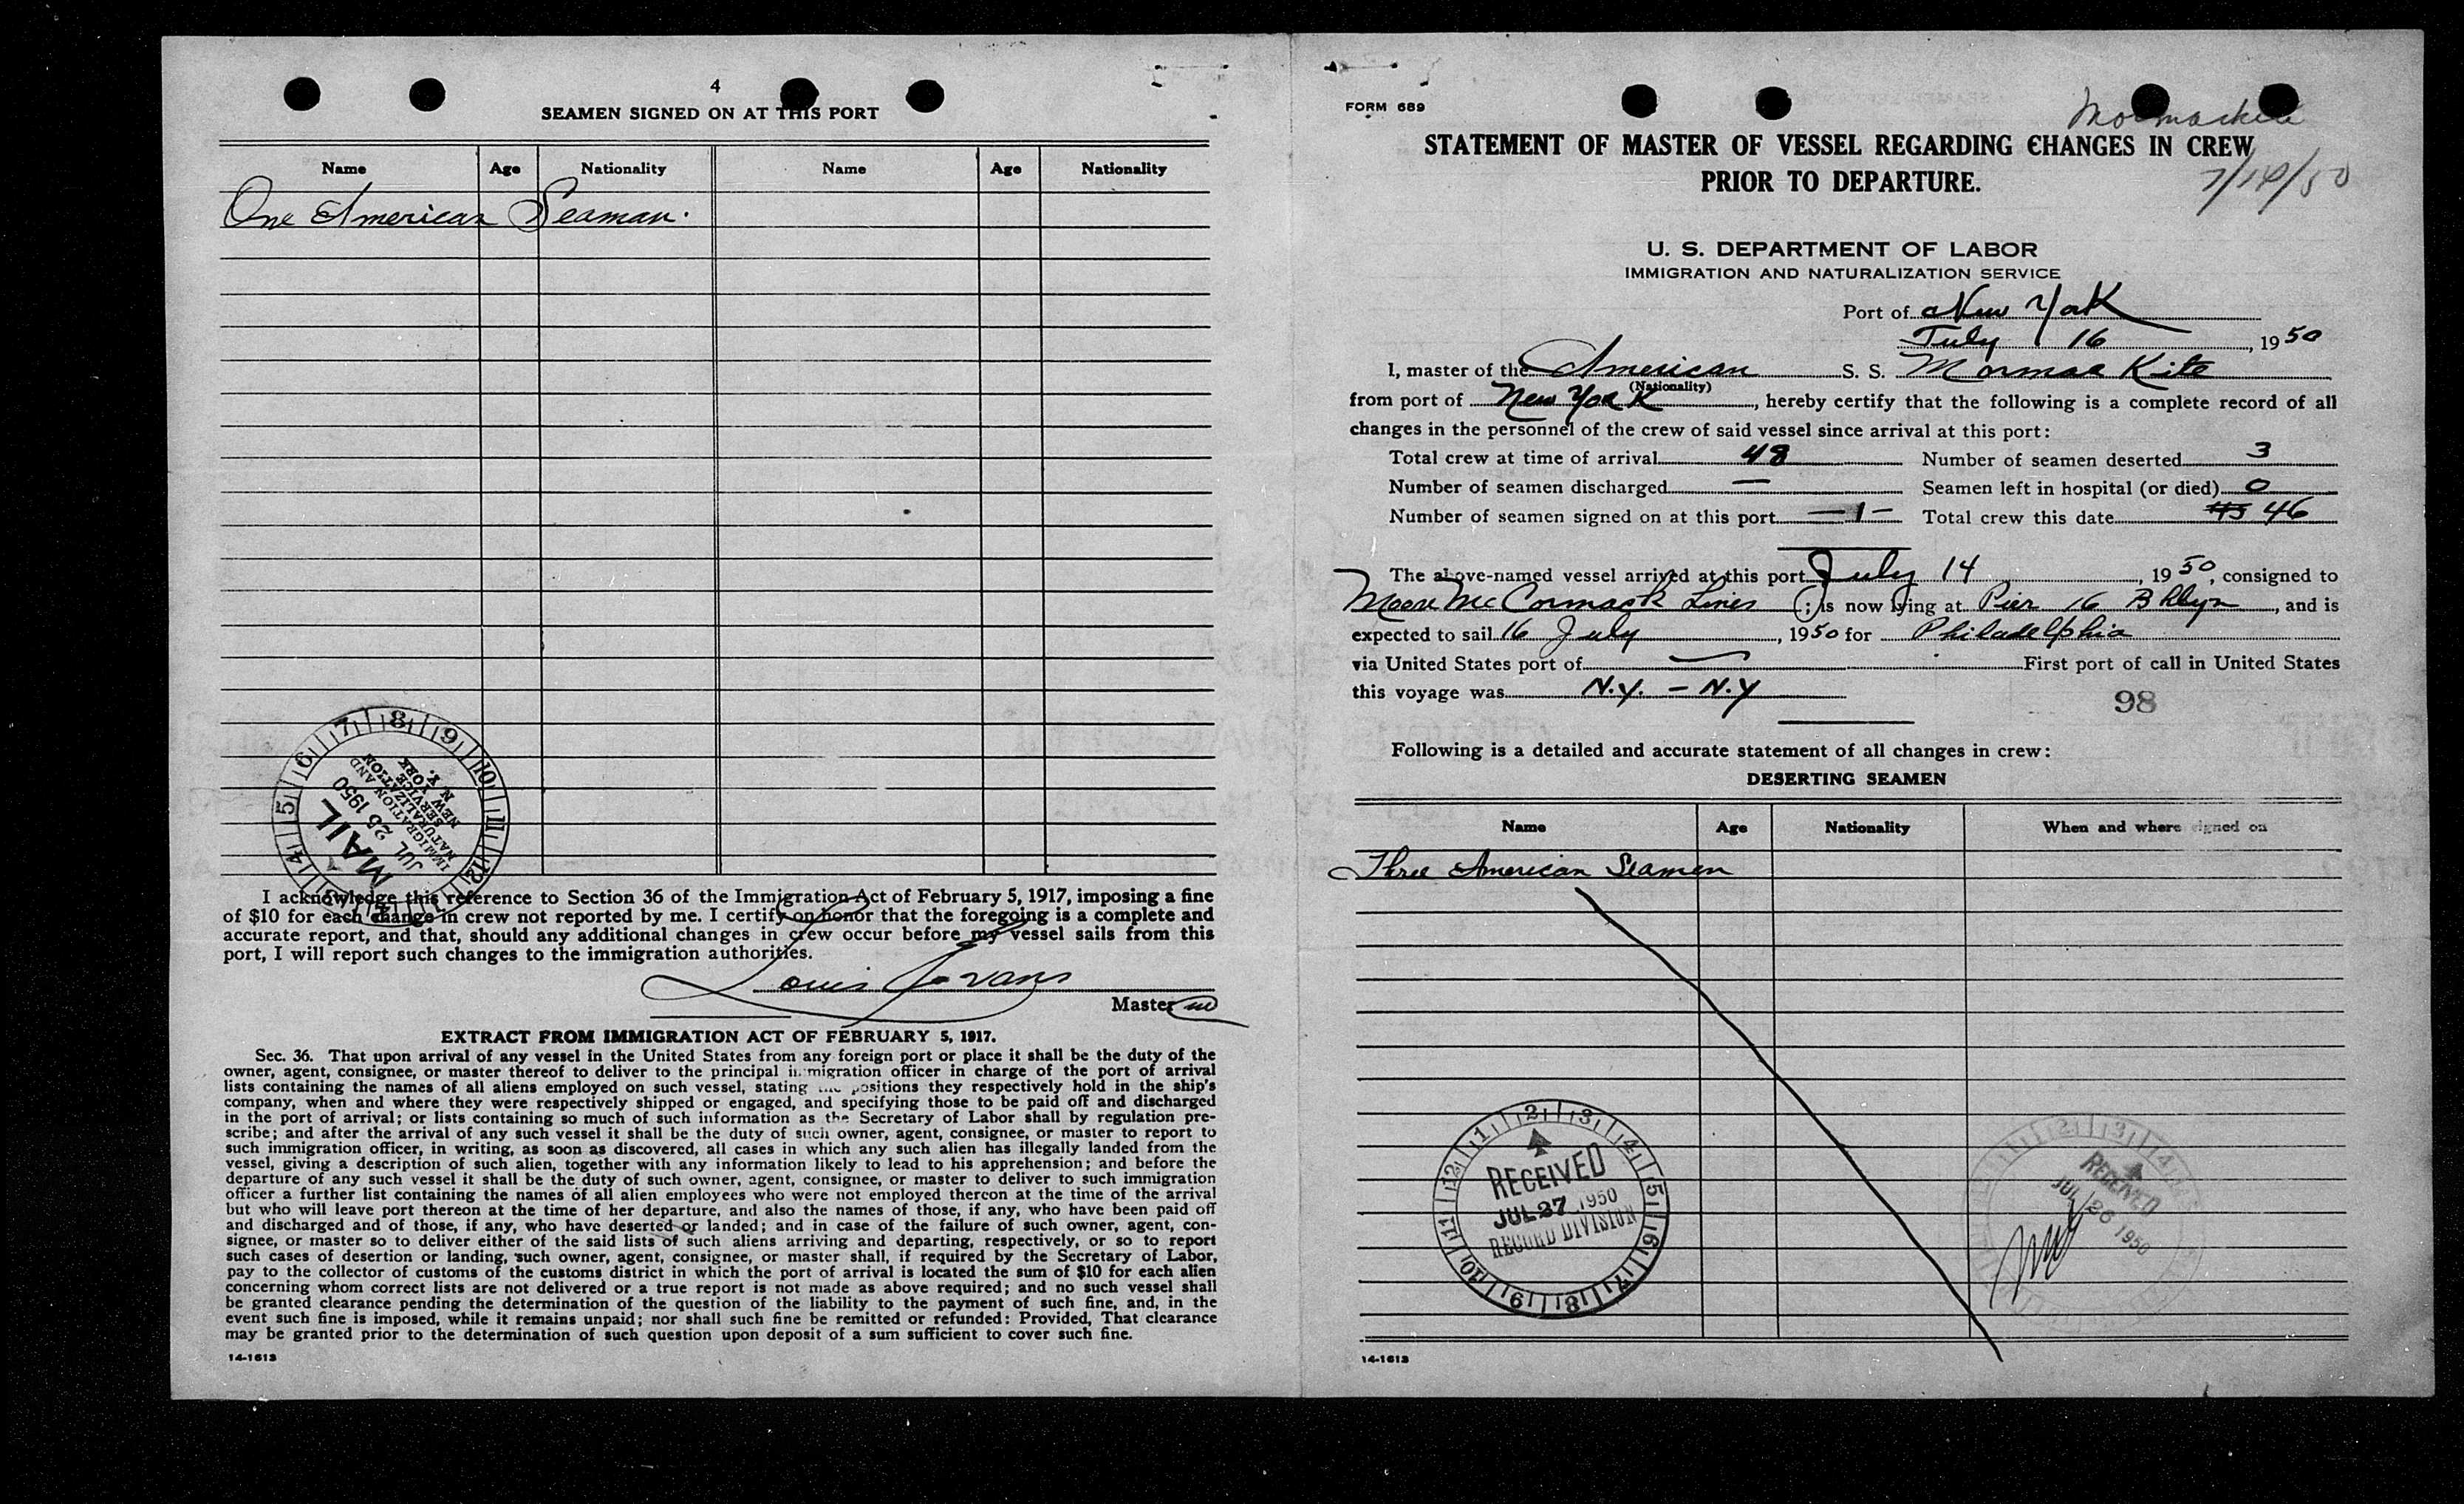 4
SEAMEN SIGNED ON AT THIS PORT
Name Age Nationality Name Age Nationality
One American Seaman.
MAIL
JUL 25 1950
IMMIGRATION AND
NATURALIZATION
SERVICE
NEW YORK
N. Y.
I acknowledge this reference to Section 36 of the Immigration Act of February 5, 1917, imposing a fine
of $10 for each change in crew not reported by me. I certify on honor that the foregoing is a complete and
accurate report, and that, should any additional changes in crew occur before my vessel sails from this
port, I will report such changes to the immigration authorities.
Louis Evans
Master
EXTRACT FROM IMMIGRATION ACT OF FEBRUARY 5, 1917.
Sec. 36. That upon arrival of any vessel in the United States from any foreign port or place it shall be the duty of the
owner, agent, consignee, or master thereof to deliver to the principal immigration officer in charge of the port of arrival
lists containing the names of all aliens employed on such vessel, stating the positions they respectively hold in the ship's
company, when and where they were respectively shipped or engaged, and specifying those to be paid off and discharged
in the port of arrival; or lists containing so much of such information as the Secretary of Labor shall by regulation pre-
scribe; and after the arrival of any such vessel it shall be the duty of such owner, agent, consignee, or master to report to
such immigration officer, in writing, as soon as discovered, all cases in which any such alien has illegally landed from the
vessel, giving a description of such alien, together with any information likely to lead to his apprehension; and before the
departure of any such vessel it shall be the duty of such owner, agent, consignee, or master to deliver to such immigration
officer a further list containing the names of all alien employees who were not employed thereon at the time of the arrival
but who will leave port thereon at the time of her departure, and also the names of those, if any, who have been paid off
and discharged and of those, if any, who have deserted or landed; and in case of the failure of such owner, agent, con-
signee, or master so to deliver either of the said lists of such aliens arriving and departing, respectively, or so to report
such cases of desertion or landing, such owner, agent, consignee, or master shall, if required by the Secretary of Labor,
pay to the collector of customs of the customs district in which the port of arrival is located the sum of $10 for each alien
concerning whom correct lists are not delivered or a true report is not made as above required; and no such vessel shall
be granted clearance pending the determination of the question of the liability to the payment of such fine, and, in the
event such fine is imposed, while it remains unpaid; nor shall such fine be remitted or refunded: Provided, That clearance
may be granted prior to the determination of such question upon deposit of a sum sufficient to cover such fine.
14-1613
FORM 689
Mormackite
STATEMENT OF MASTER OF VESSEL REGARDING CHANGES IN CREW
PRIOR TO DEPARTURE.
7/14/50
U. S. DEPARTMENT OF LABOR
IMMIGRATION AND NATURALIZATION SERVICE
Port of New York
July 16, 1950
I, master of the American S. S. Mormac Kite
(Nationality)
from port of New York, hereby certify that the following is a complete record of all
changes in the personnel of the crew of said vessel since arrival at this port:
Total crew at time of arrival 48 Number of seamen deserted 3
Number of seamen discharged — Seamen left in hospital (or died) 0
Number of seamen signed on at this port — 1 — Total crew this date 45 46
The above-named vessel arrived at this port July 14, 1950, consigned to
Moore McCormack Lines; is now lying at Pier 16 Bklyn, and is
expected to sail 16 July, 1950 for Philadelphia
via United States port of — First port of call in United States
this voyage was N.Y. - N.Y
98
Following is a detailed and accurate statement of all changes in crew:
DESERTING SEAMEN
Name Age Nationality When and where signed on
Three American Seamen
RECEIVED
JUL 27 1950
RECORD DIVISION
RECEIVED
JUL 26 1950
14-1613